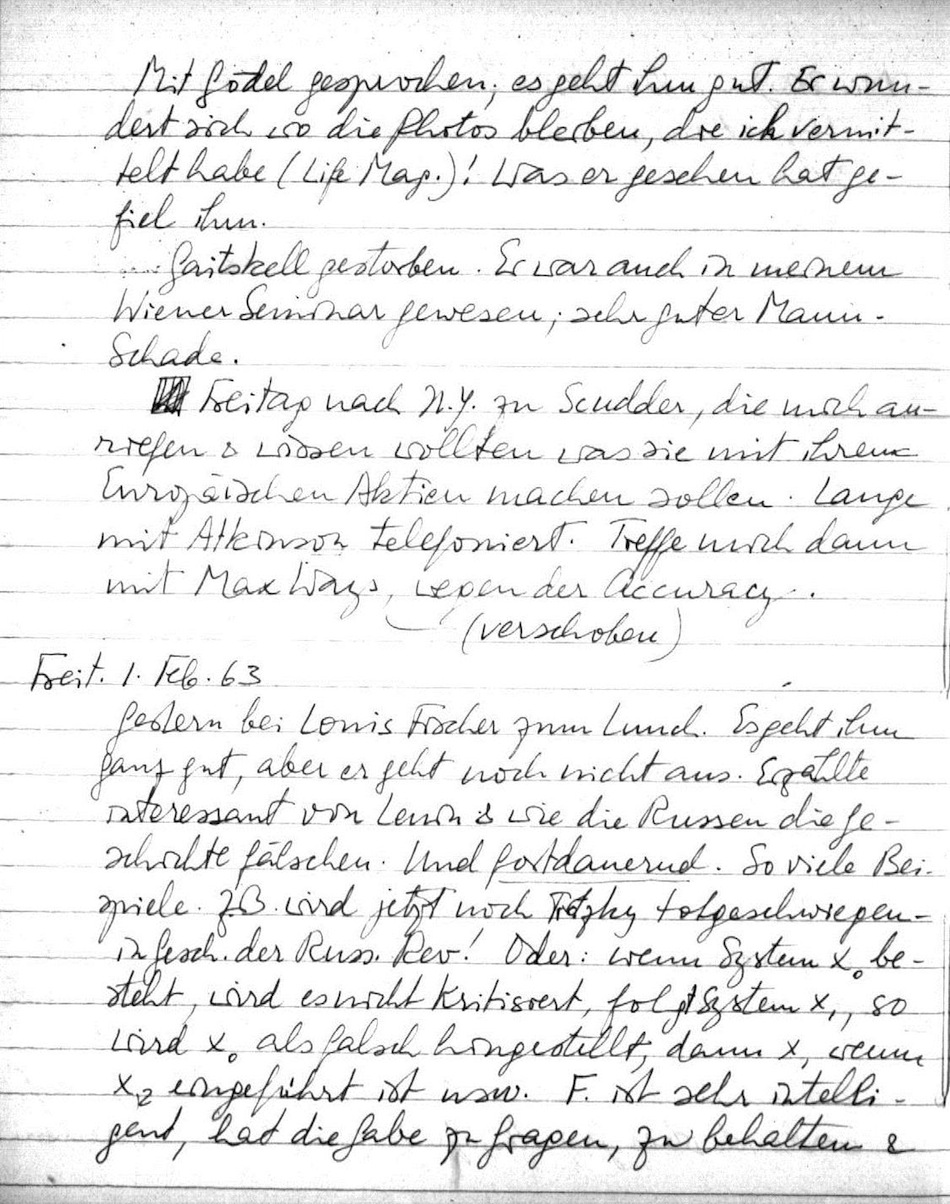 Mit Gödel gesprochen; es geht ihm gut. Er wun-
dert sich wo die Photos bleiben, die ich vermit-
telt habe (Life Mag.)! Was er gesehen hat ge-
fiel ihm.
Gaitskell gestorben. Er war auch in meinem
Wiener Seminar gewesen; sehr guter Mann.
Schade.
Freitag nach N.Y. zu Scudder, die mich an-
riefen & wissen wollten was sie mit ihren
Europäischen Aktien machen sollen. Lange
mit Atkinson telefoniert. Treffe mich dann
mit Max Ways, wegen der Accuracy.
(verschoben)
Freit. 1. Feb. 63
Gestern bei Louis Fischer zum Lunch. Es geht ihm
ganz gut, aber er geht noch nicht aus. Erzählte
interessant von Lenin & wie die Russen die Ge-
schichte fälschen. Und fortdauernd. So viele Bei-
spiele. Z.B. wird jetzt noch Trotzky totgeschwiegen -
in Gesch. der Russ. Rev! Oder: wenn System x₀ be-
steht, wird es nicht kritisiert, folgt System x₁, so
wird x₀ als falsch hingestellt, dann x₁ wenn
x₂ eingeführt ist usw. F. ist sehr intelli-
gent, hat die Gabe zu fragen, zu behalten &